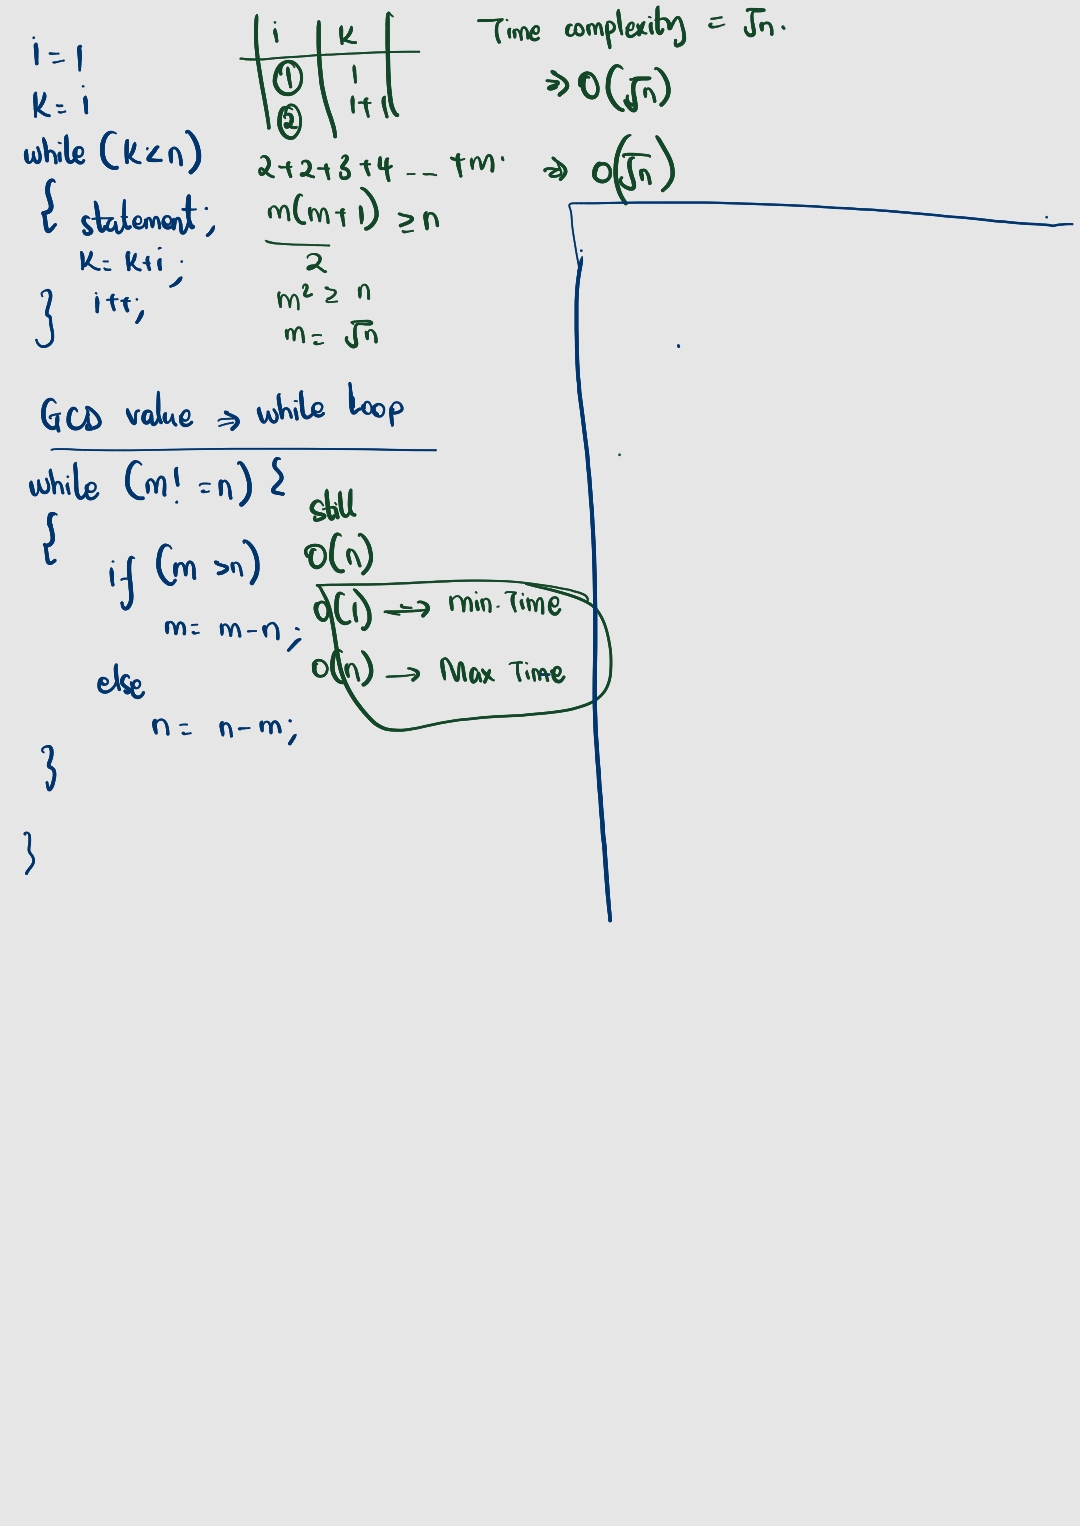 i = 1
K = i
while (K<n)
{ statement;
K = K+i;
i++;
}
i K
1 1
2 1+1
2+2+3+4 -- +m.
m(m+1) ≥ n
2
m² ≥ n
m = √n
Time complexity = √n.
⇒ O(√n)
⇒ O(√n)
GCD value ⇒ while loop
while (m! =n) {
{
if (m >n)
m = m-n;
else
n = n-m;
}
}
still
O(n)
O(1) → min. Time
O(n) → Max Time